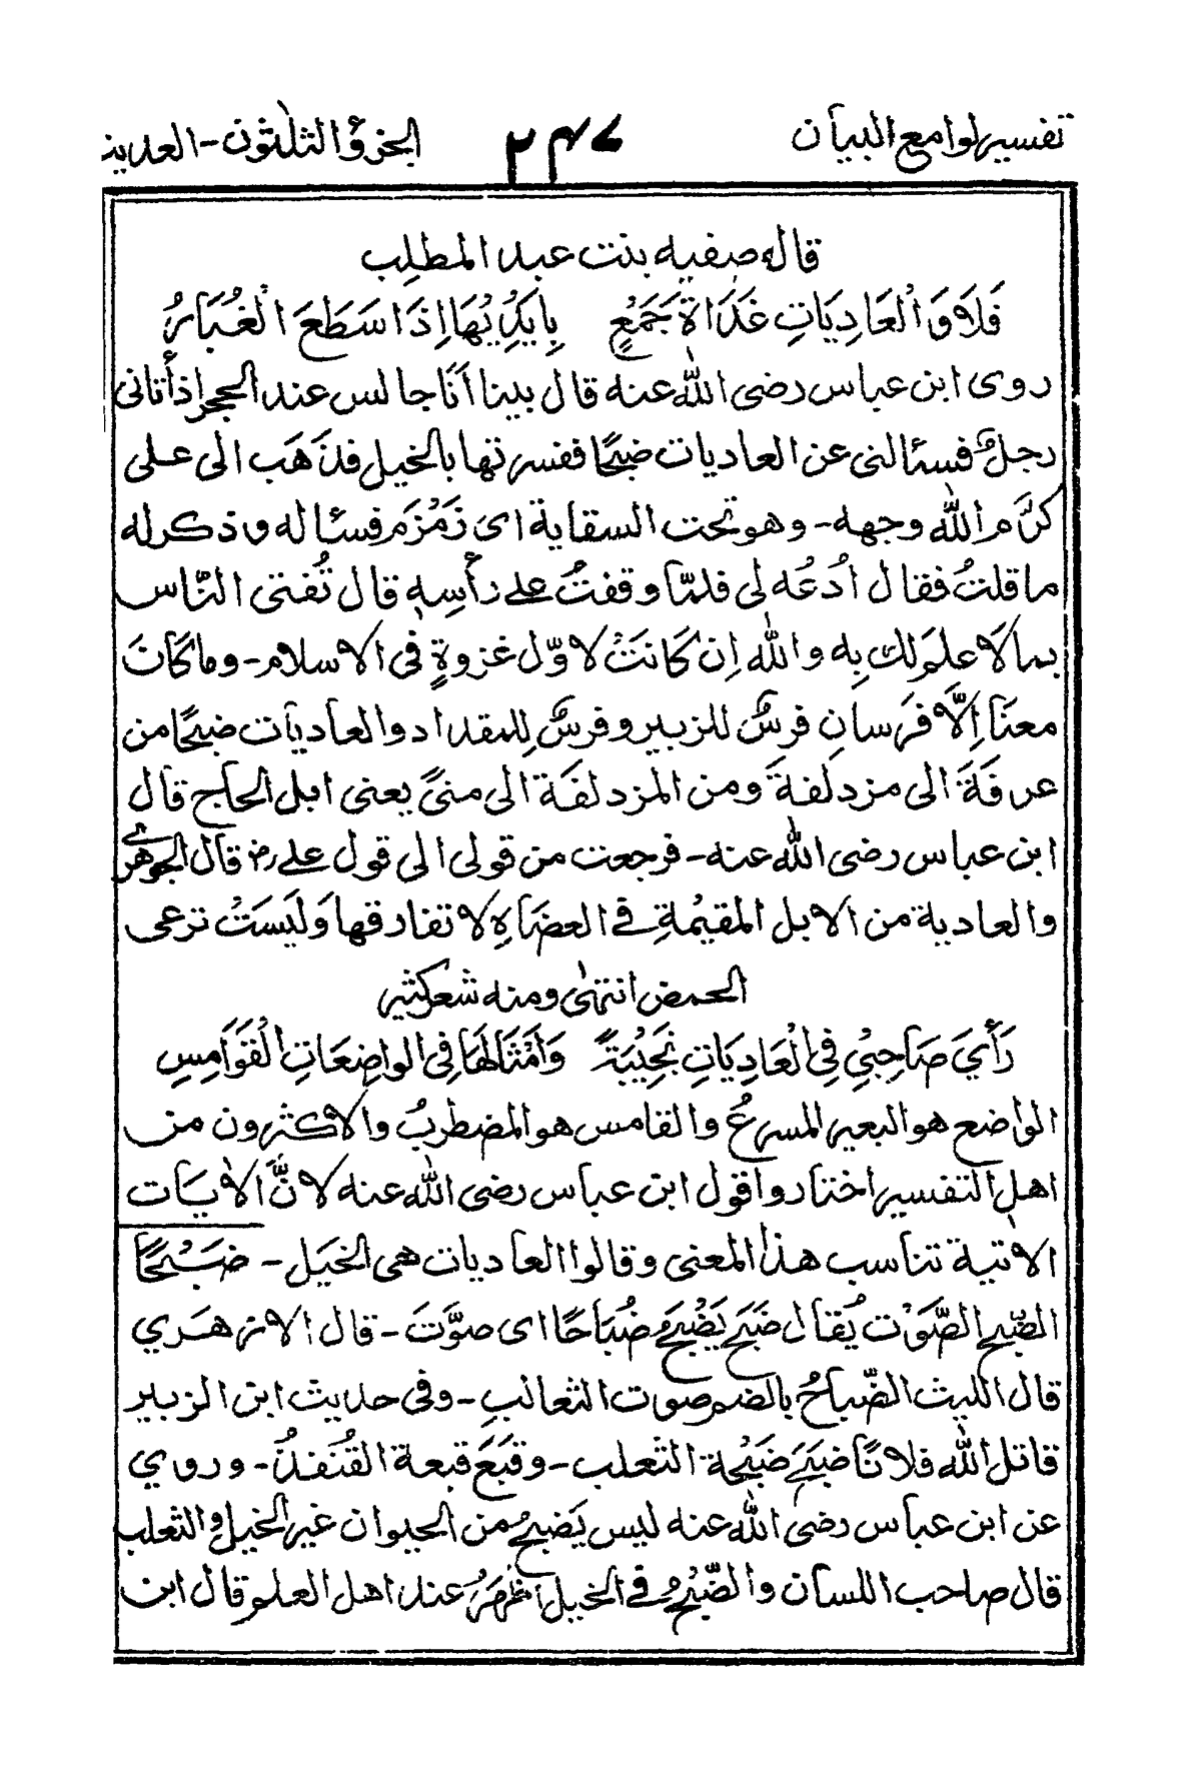 تفسير لوامع البيان ٢٤٧ الجزؤ الثلٰثون - العديٰت
قاله صفيه بنت عبد المطلب
فَلَا وَالْعَادِيَاتِ غَدَاةَ جَمَعٍ بِاَيْدِيْهَا اِذَا سَطَعَ الْغُبَارُ
روى ابن عباس رضى الله عنه قال بينا اَنَا جالس عند الحجر اذ أتانى
رجلٌ فسئالنى عن العاديات ضبحًا ففسرتها بالخيل فذَهَب الى على
كرَّم الله وجهه - وهو تحت السقاية اى زَمْزَم فسئاله وذكر له
ما قلتُ فقال اُدْعُه لى فلمّا وقفتُ على رَأسِه قال تُفتى النّاس
بما لَا علم لك بِه والله اِن كَانَتْ لاوّل غزوةٍ فى الاسلام - وما كَانَ
معنَا اِلَّا فَرَسانِ فرسٌ للزبير وفرسٌ لِلمقداد والعاديات ضبحًا من
عرفَةَ الى مزدلفةَ ومن المزدلفَة الى منىً يعنى ابل الحاج قال
ابن عباس رضى الله عنه - فرجعت من قولى الى قول على رض قال الجوهرى
والعادية من الابل المقيْمةِ فى العضَاهِ لا تفارقها وَلَيسَتْ ترعى
الحمض انتهىٰ ومنه شعر كثير
رَأٰيَ صَاحِبِيْ فِى الْعَادِيَاتِ نَجِيْبَةً وَاَمْثَالَهَا فِى الواضِعَاتِ الْقَوَامِسِ
الواضع هو البعير المسرعُ والقامس هو المضطربُ والاكثرون من
اهلِ التفسير اختاروا قول ابن عباس رضى الله عنه لانَّ الاٰيَات
الاٰتية تناسب هذا المعنى وقالوا العاديات هى الخيَل - ضَبْحًا
الضّبح الصَّوْت يُقال ضَبَحَ يَضْبَحُ ضُبَاحًا اى صوَّتَ - قال الازهَري
قال الليث الضّباحُ بالضم صوت الثعالبِ - وفى حديث ابن الزبير
قاتل الله فلانًا ضبَحَ ضَبْحة الثعلب - وقَبَعَ قبعة القُنْفذُ - وروي
عن ابن عباس رضى الله عنه ليس يَضبحُ من الحيوان غير الخيل والثعلب
قال صاحب اللسان والضّبْحُ فى الخيل اَظهَرُ عند اهل العلم قال ابن